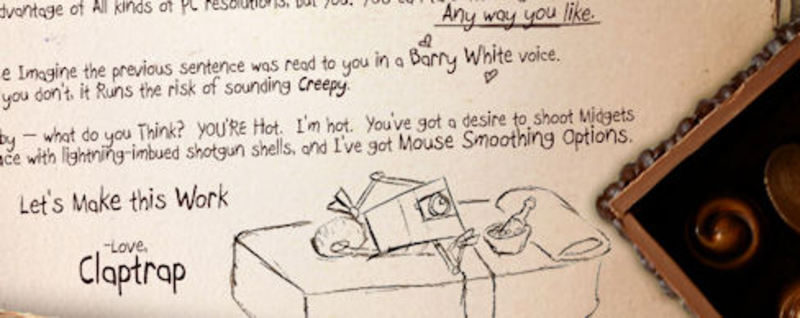 dvantage of All kinds of PC resolutions, but you, you
Any way you like.
e Imagine the previous sentence was read to you in a Barry White voice.
you don't, it Runs the risk of sounding Creepy.
by — what do you Think? YOU'RE Hot. I'm hot. You've got a desire to shoot Midgets
ce with lightning-imbued shotgun shells, and I've got Mouse Smoothing Options.
Let's Make this Work
-Love,
Claptrap